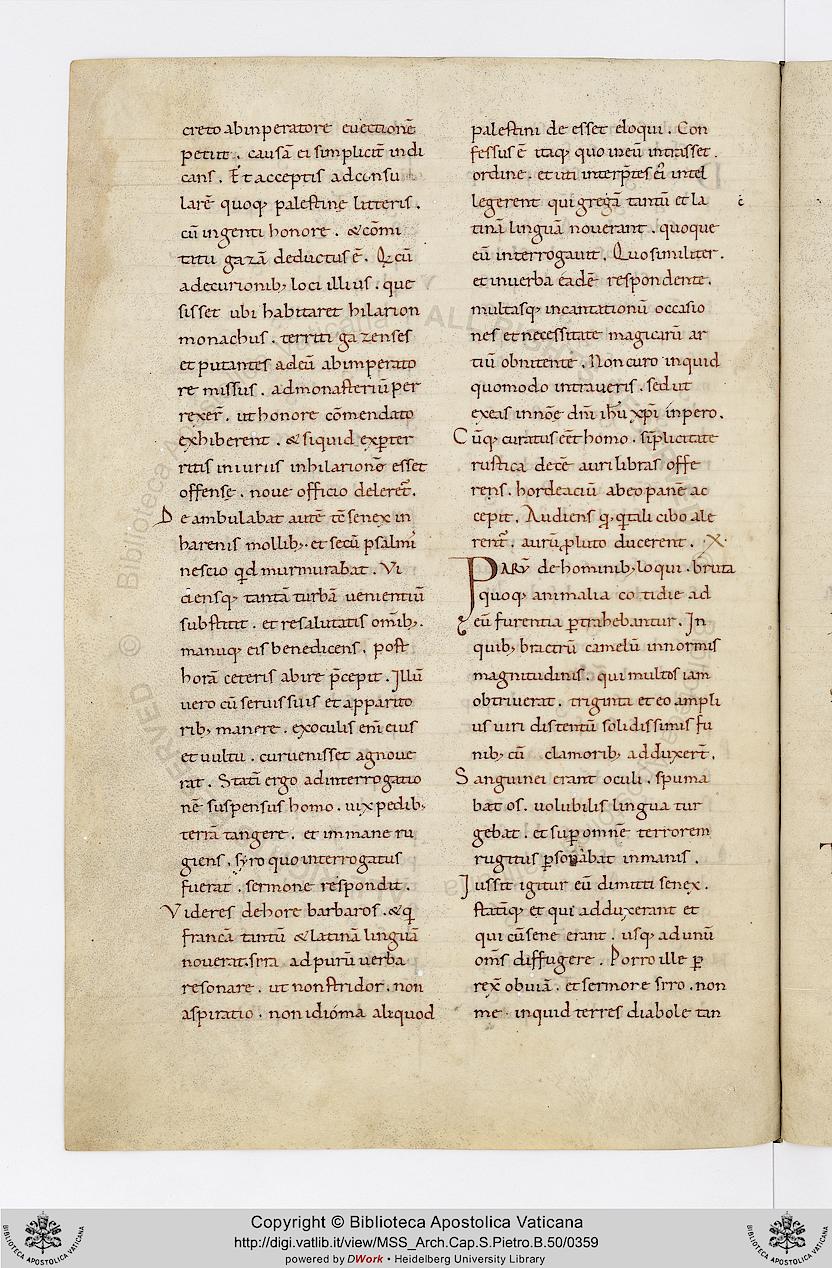 creto abinperatore euectionē
petiit . causā ei simplicit̄ indi
cans . Et acceptis adconsu
larē quoq; palestinę litteris .
cū ingenti honore . &cōmi
titu gazā deductus ē . Q cū
adecurionib; loci illius . que
sisset ubi habitaret hilarion
monachus . territi gazenses
et putantes adcū abimperato
re missus . admonasteriū per
rexer̄ . ut honore cōmendato
exhiberent . &siquid exp̄ter
ritis iniuriis inhilarionē esset
offense . noue officio deleret̄ .
Deambulabat autē tē senex in
harenis mollib; . et secū psalmi
nescio qd murmurabat . Vi
ciensq; tantā turbā uenientiū
substitit . et resalutatis omīb; .
manuq; eis benedicens . post
horā ceteris abire p̄cepit . Illū
uero cū seruis suis et apparito
rib; manere . exoculis enī eius
et uultu . curuenisset agnoue
rat . Statī ergo adinterrogatio
nē suspensus homo . uix pedib;
terrā tangere . et inmane ru
giens . syro quo interrogatus
fuerat . sermone respondit .
Videres dehore barbaros . &q
francā tantū &latinā linguā
nouerat . sira adpurū uerba
resonare . ut non stridor . non
aspiratio . non idioma aliquod
palestini deesset eloqui . Con
fessus ē itaq; quo ineū intrasset .
ordine . et uti interp̄tes ei intel
legerent qui gregā tantū et la
tinā linguā nouerant . quoque
eū interrogauit . Quo similiter .
et inuerba eadē respondente .
multasq; incantationū occasio
nes et necessitate magicarū ar
tiū obnitente . Non curo inquid
quomodo intraueris . sed ut
exeas innōe dn̄i ihū xp̄i inpero .
Cūq; curatus eēt homo . sīplicitate
rustica decē auri libras offe
rens . hordeaciū abeo panē ac
cepit . Audiens q; qtali cibo ale
rent̄ . aurū p̱luto ducerent . X .
PARŪ dehominib; loqui . bruta
quoq; animalia cotidie ad
eū furentia p̱trahebantur . In
quib; bractrū camelū innormis
magnitudinis . qui multos iam
obtriuerat . triginta et eo ampli
us uiri distentū solidissimis fu
nib; cū clamorib; adduxert̄ .
Sanguinei erant oculi . spuma
bat os . uolubilis lingua tur
gebat . et sup̱ omnē terrorem
rugitus p̱sonabat inmanis .
Jussit igitur eū dimitti senex .
statīq; et qui adduxerant et
qui cūsene erant . usq; adunū
om̄s diffugere . Porro ille p̱
rex̄ obuiā . et sermone siro . non
me . inquid terres diabole tan
Copyright © Biblioteca Apostolica Vaticana
http://digi.vatlib.it/view/MSS_Arch.Cap.S.Pietro.B.50/0359
powered by DWork • Heidelberg University Library